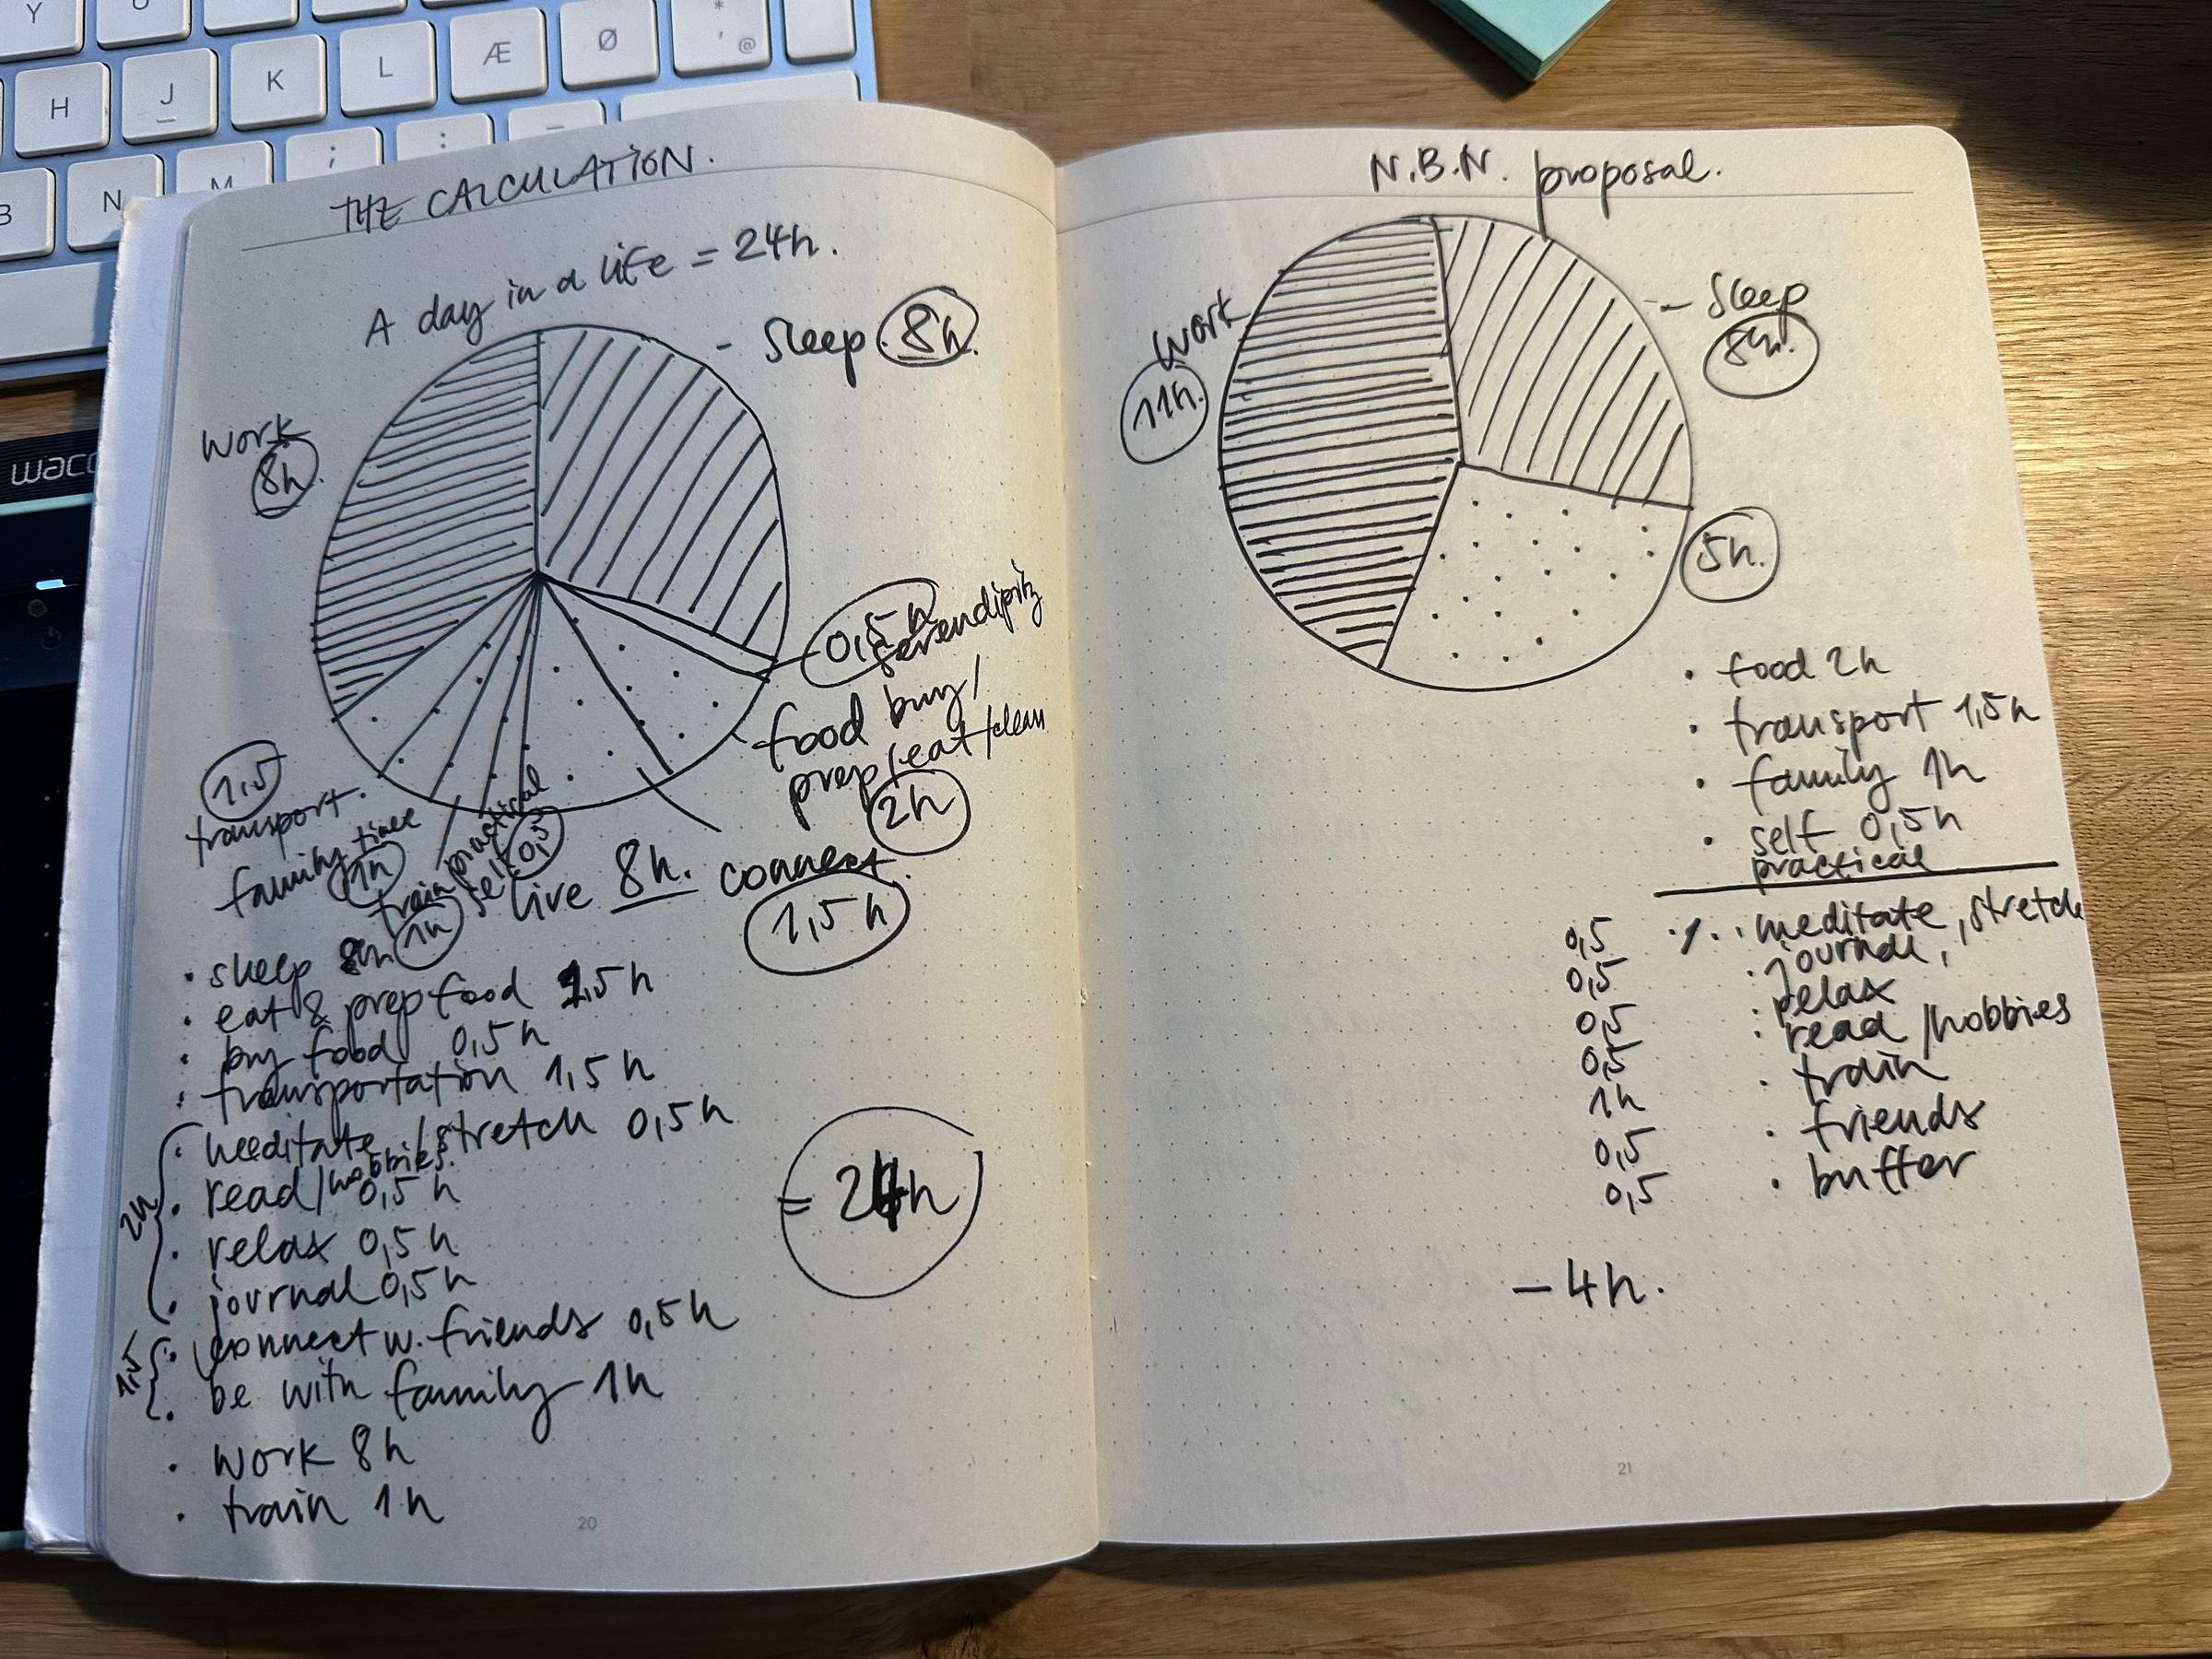 Y
U
H
J
K
L
Æ
Ø
*
'
@
B
N
M
;
:
–
wac
THE CALCULATION.
A day in a life = 24h.
– Sleep 8h.
work
8h.
0,5h
serendipity
food buy/
prep/eat/clean
2h
1,5
transport.
family time
1h
train
1h
practical
self
0,5
live 8h.
connect.
1,5h
• sleep 8h
• eat & prep food 1,5h
• buy food 0,5h
• transportation 1,5h
2h
• meditate/stretch 0,5h
• read/hobbies 0,5h
• relax 0,5h
• journal 0,5h
1,5
• connect w. friends 0,5h
• be with family 1h
• work 8h
• train 1h
= 24h
20
N.B.N. proposal.
– Sleep
8h.
work
11h.
5h.
• food 2h
• transport 1,5h
• family 1h
• self 0,5h
practical
0,5 • meditate, stretch
0,5 • journal,
0,5 • relax
0,5 • read/hobbies
1h • train
0,5 • friends
0,5 • buffer
– 4h.
21